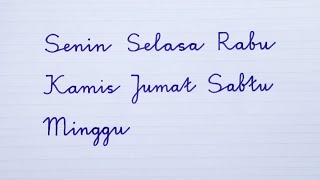 Senin Selasa Rabu
Kamis Jumat Sabtu
Minggu